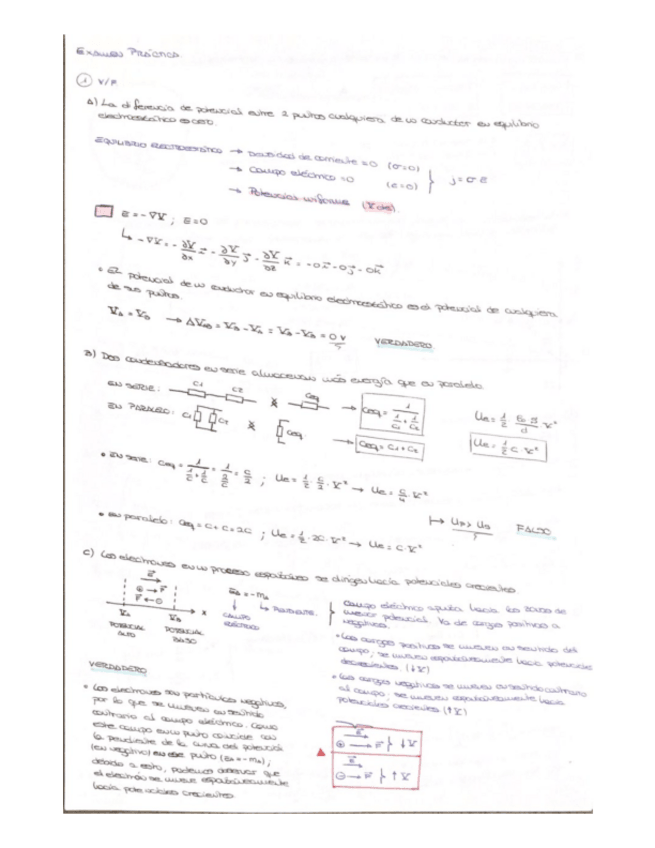 Examen Práctica
1 V/F
A) La diferencia de potencial entre 2 puntos cualquiera de un conductor en equilibrio
electroestático es cero.
EQUILIBRIO ELECTROESTÁTICO → Densidad de corriente = 0 (σ=0)
→ Campo eléctrico = 0 (e=0) } j = σ·e
→ Potencial uniforme (V cte).
E = -∇V ; E=0
↳ -∇V = - ∂V/∂x i - ∂V/∂y j - ∂V/∂z k = -0i - 0j - 0k
• El potencial de un conductor en equilibrio electroestático es el potencial de cualquiera
de sus puntos.
VA = VB → ΔVAB = VB - VA = VB - VB = 0 V VERDADERO
B) Dos condensadores en serie almacenan más energía que en paralelo
EN SERIE: C1 C2 Ceq → Ceq = 1/(1/C1 + 1/C2) Ue = 1/2 · ε0·S/d · V²
EN PARALELO: C1 C2 Ceq → Ceq = C1 + C2 Ue = 1/2 C · V²
• En serie: Ceq = 1/(1/C + 1/C) = 1/(2/C) = C/2 ; Ue = 1/2 · C/2 · V² → Ue = C/4 · V²
• En paralelo: Ceq = C + C = 2C ; Ue = 1/2 · 2C · V² → Ue = C · V² ↦ Up > Us FALSO
C) Los electrones en un proceso espontáneo se dirigen hacia potenciales crecientes
E
⊕ → F
F ← ⊖
VA VB x
POTENCIAL ALTO POTENCIAL BAJO
EA = -mA
CAMPO ELÉCTRICO PENDIENTE
Campo eléctrico apunta hacia las zonas de
menor potencial. Va de cargas positivas a
negativas.
• Las cargas positivas se mueven en sentido del
campo; se mueven espontáneamente hacia potenciales
decrecientes. (↓V)
• Las cargas negativas se mueven en sentido contrario
al campo; se mueven espontáneamente hacia
potenciales crecientes (↑V)
VERDADERO
• Los electrones son partículas negativas,
por lo que se mueven en sentido
contrario al campo eléctrico. Como
este campo en un punto coincide con
la pendiente de la curva del potencial
(en negativo) en ese punto (EA = -mA);
debido a esto, podemos observar que
el electrón se mueve espontáneamente
hacia potenciales crecientes
E
⊕ → F } ↓V
E
⊖ → F } ↑V